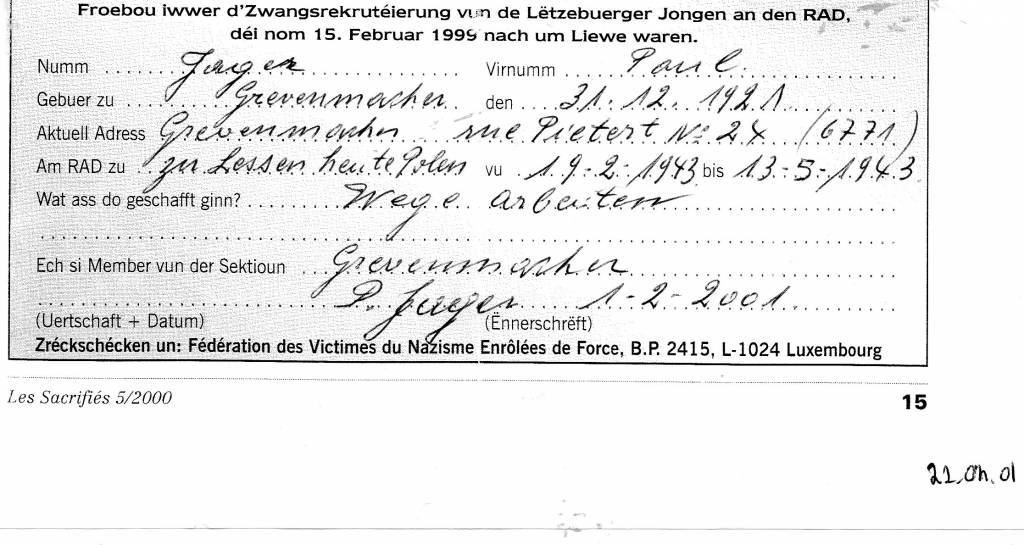 Froebou iwwer d'Zwangsrekrutéierung vun de Lëtzebuerger Jongen an den RAD,
déi nom 15. Februar 1999 nach um Liewe waren.
Numm Jager Virnumm Paul
Gebuer zu Grevenmacher den 31.12.1921
Aktuell Adress Grevenmacher rue Pietert No 24 (6771)
Am RAD zu zu Lessen heute Polen vu 19-2-1943 bis 13-5-1943
Wat ass do geschafft ginn? Wege arbeiten
Ech si Member vun der Sektioun Grevenmacher
P. Jager 1-2-2001
(Uertschaft + Datum) (Ënnerschrëft)
Zréckschécken un: Fédération des Victimes du Nazisme Enrôlées de Force, B.P. 2415, L-1024 Luxembourg
Les Sacrifiés 5/2000 15